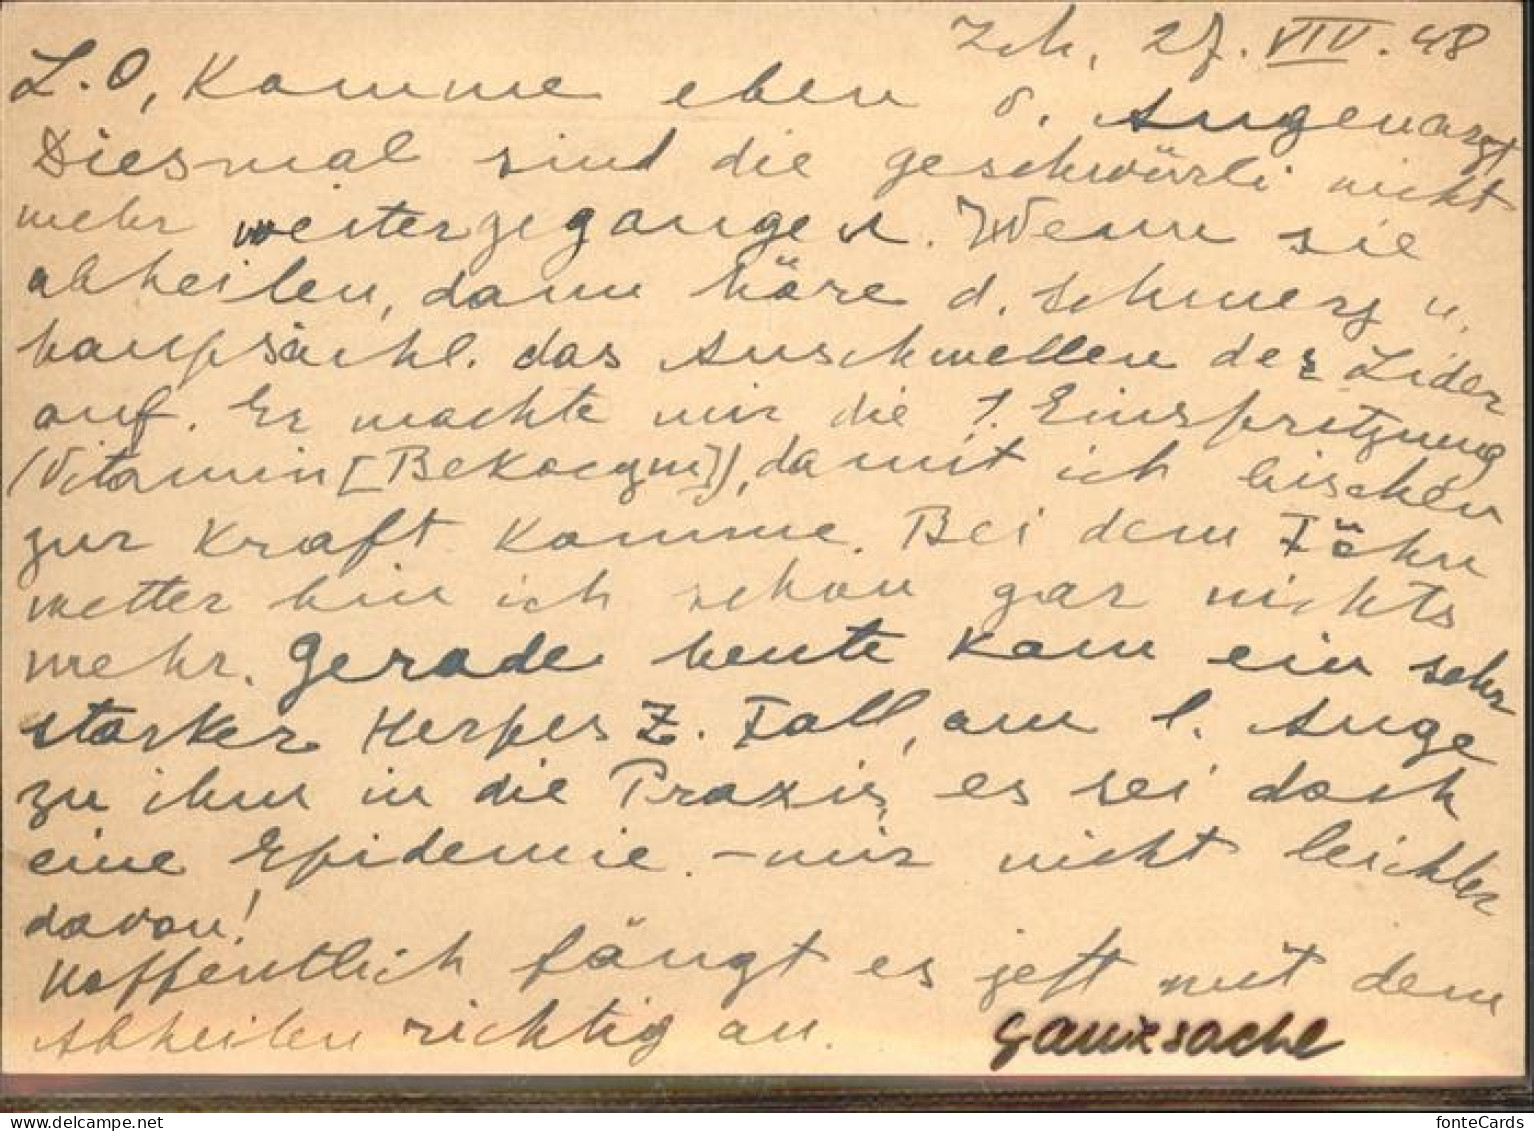 Zch, 27. VIII. 48
L. O, Komme eben v. Augenarzt
Diesmal sind die geschwürli nicht
mehr weitergegangen. Wenn sie
abheilen, dann höre d. Schmerz u.
haupsächl. das Anschwellen der Lider
auf. Er machte mir die 1. Einspritzung
(Vitamin [Bekozym]), damit ich bischen
zur Kraft komme. Bei dem Föhn
wetter bin ich schon gar nichts
mehr. Gerade heute kam ein sehr
starker Herpes Z. Fall, am l. Auge
zu ihm in die Praxis, es sei doch
eine Epidemie. - mir nicht leichter
davon!
Hoffentlich fängt es jetzt mit dem
Abheilen richtig an.
Ganzsache
fonteCards